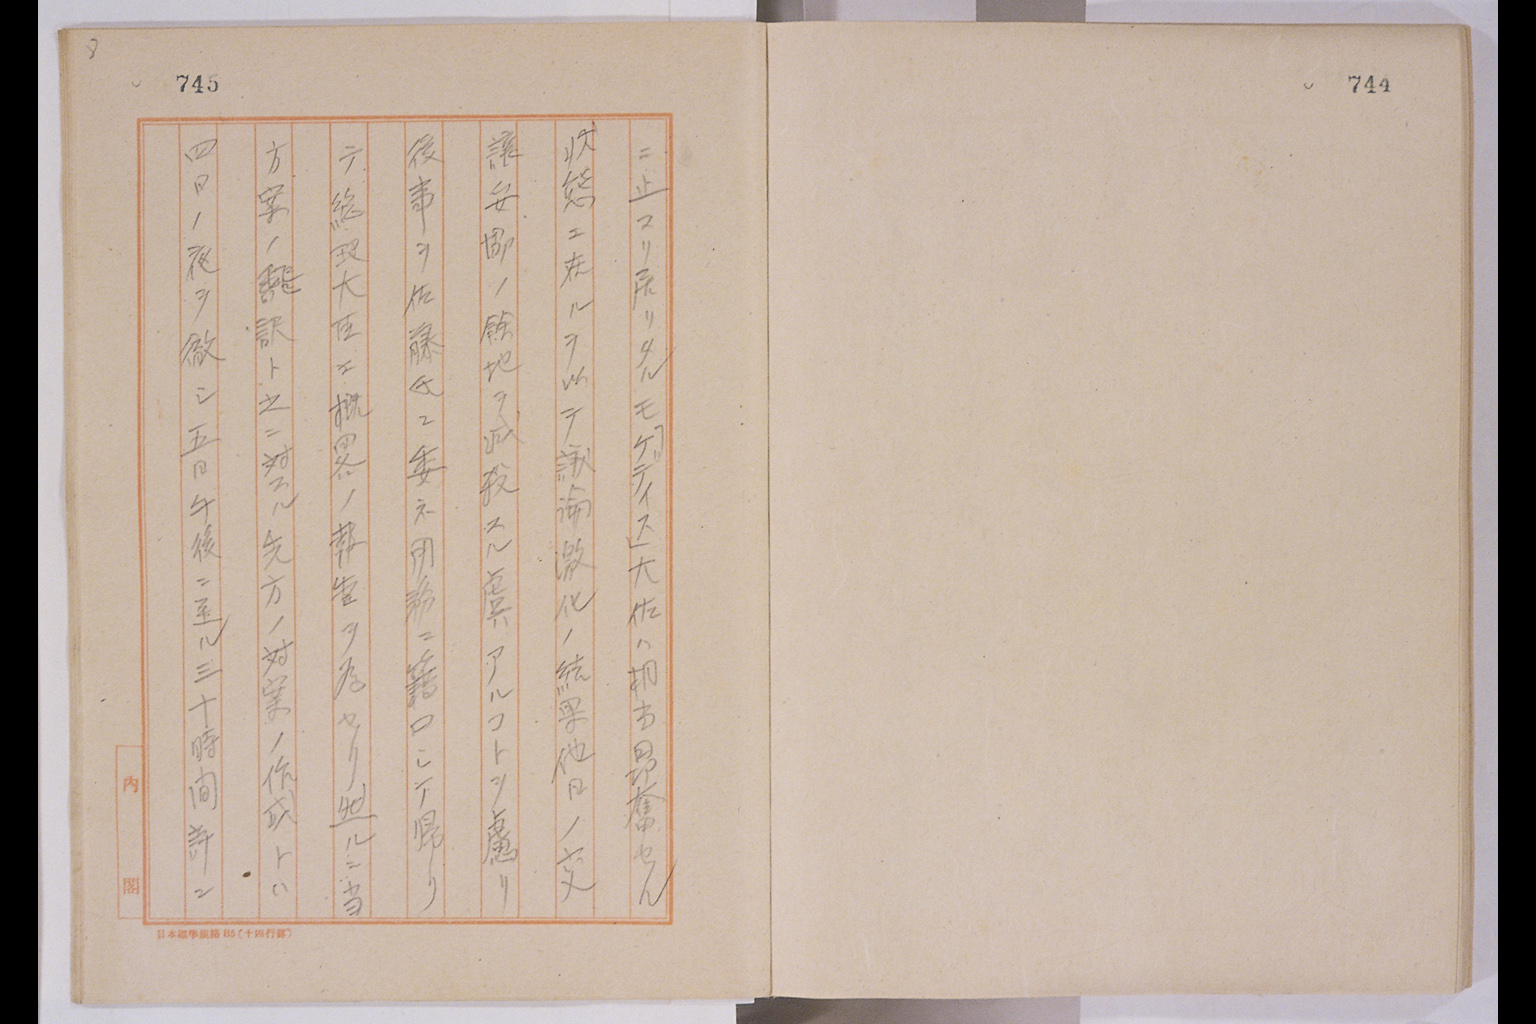 744
745
8
ニ止マリ居リタルモ「ケーディス」大佐ハ相当昂奮セル
状態ニ在ルヲ以テ議論激化ノ結果他日ノ交
譲妥協ノ餘地ヲ減殺スル虞アルコトヲ慮リ
後事ヲ佐藤氏ニ委ネ用務ニ籍口シテ帰リ
テ総理大臣ニ概略ノ報告ヲ為セリ然ルニ当
方案ノ飜訳ト之ニ対スル先方ノ対案ノ作成トハ
四日ノ夜ヲ徹シ五日午後ニ至ル三十時間許ン
内閣
日本標準規格B5(十四行罫)